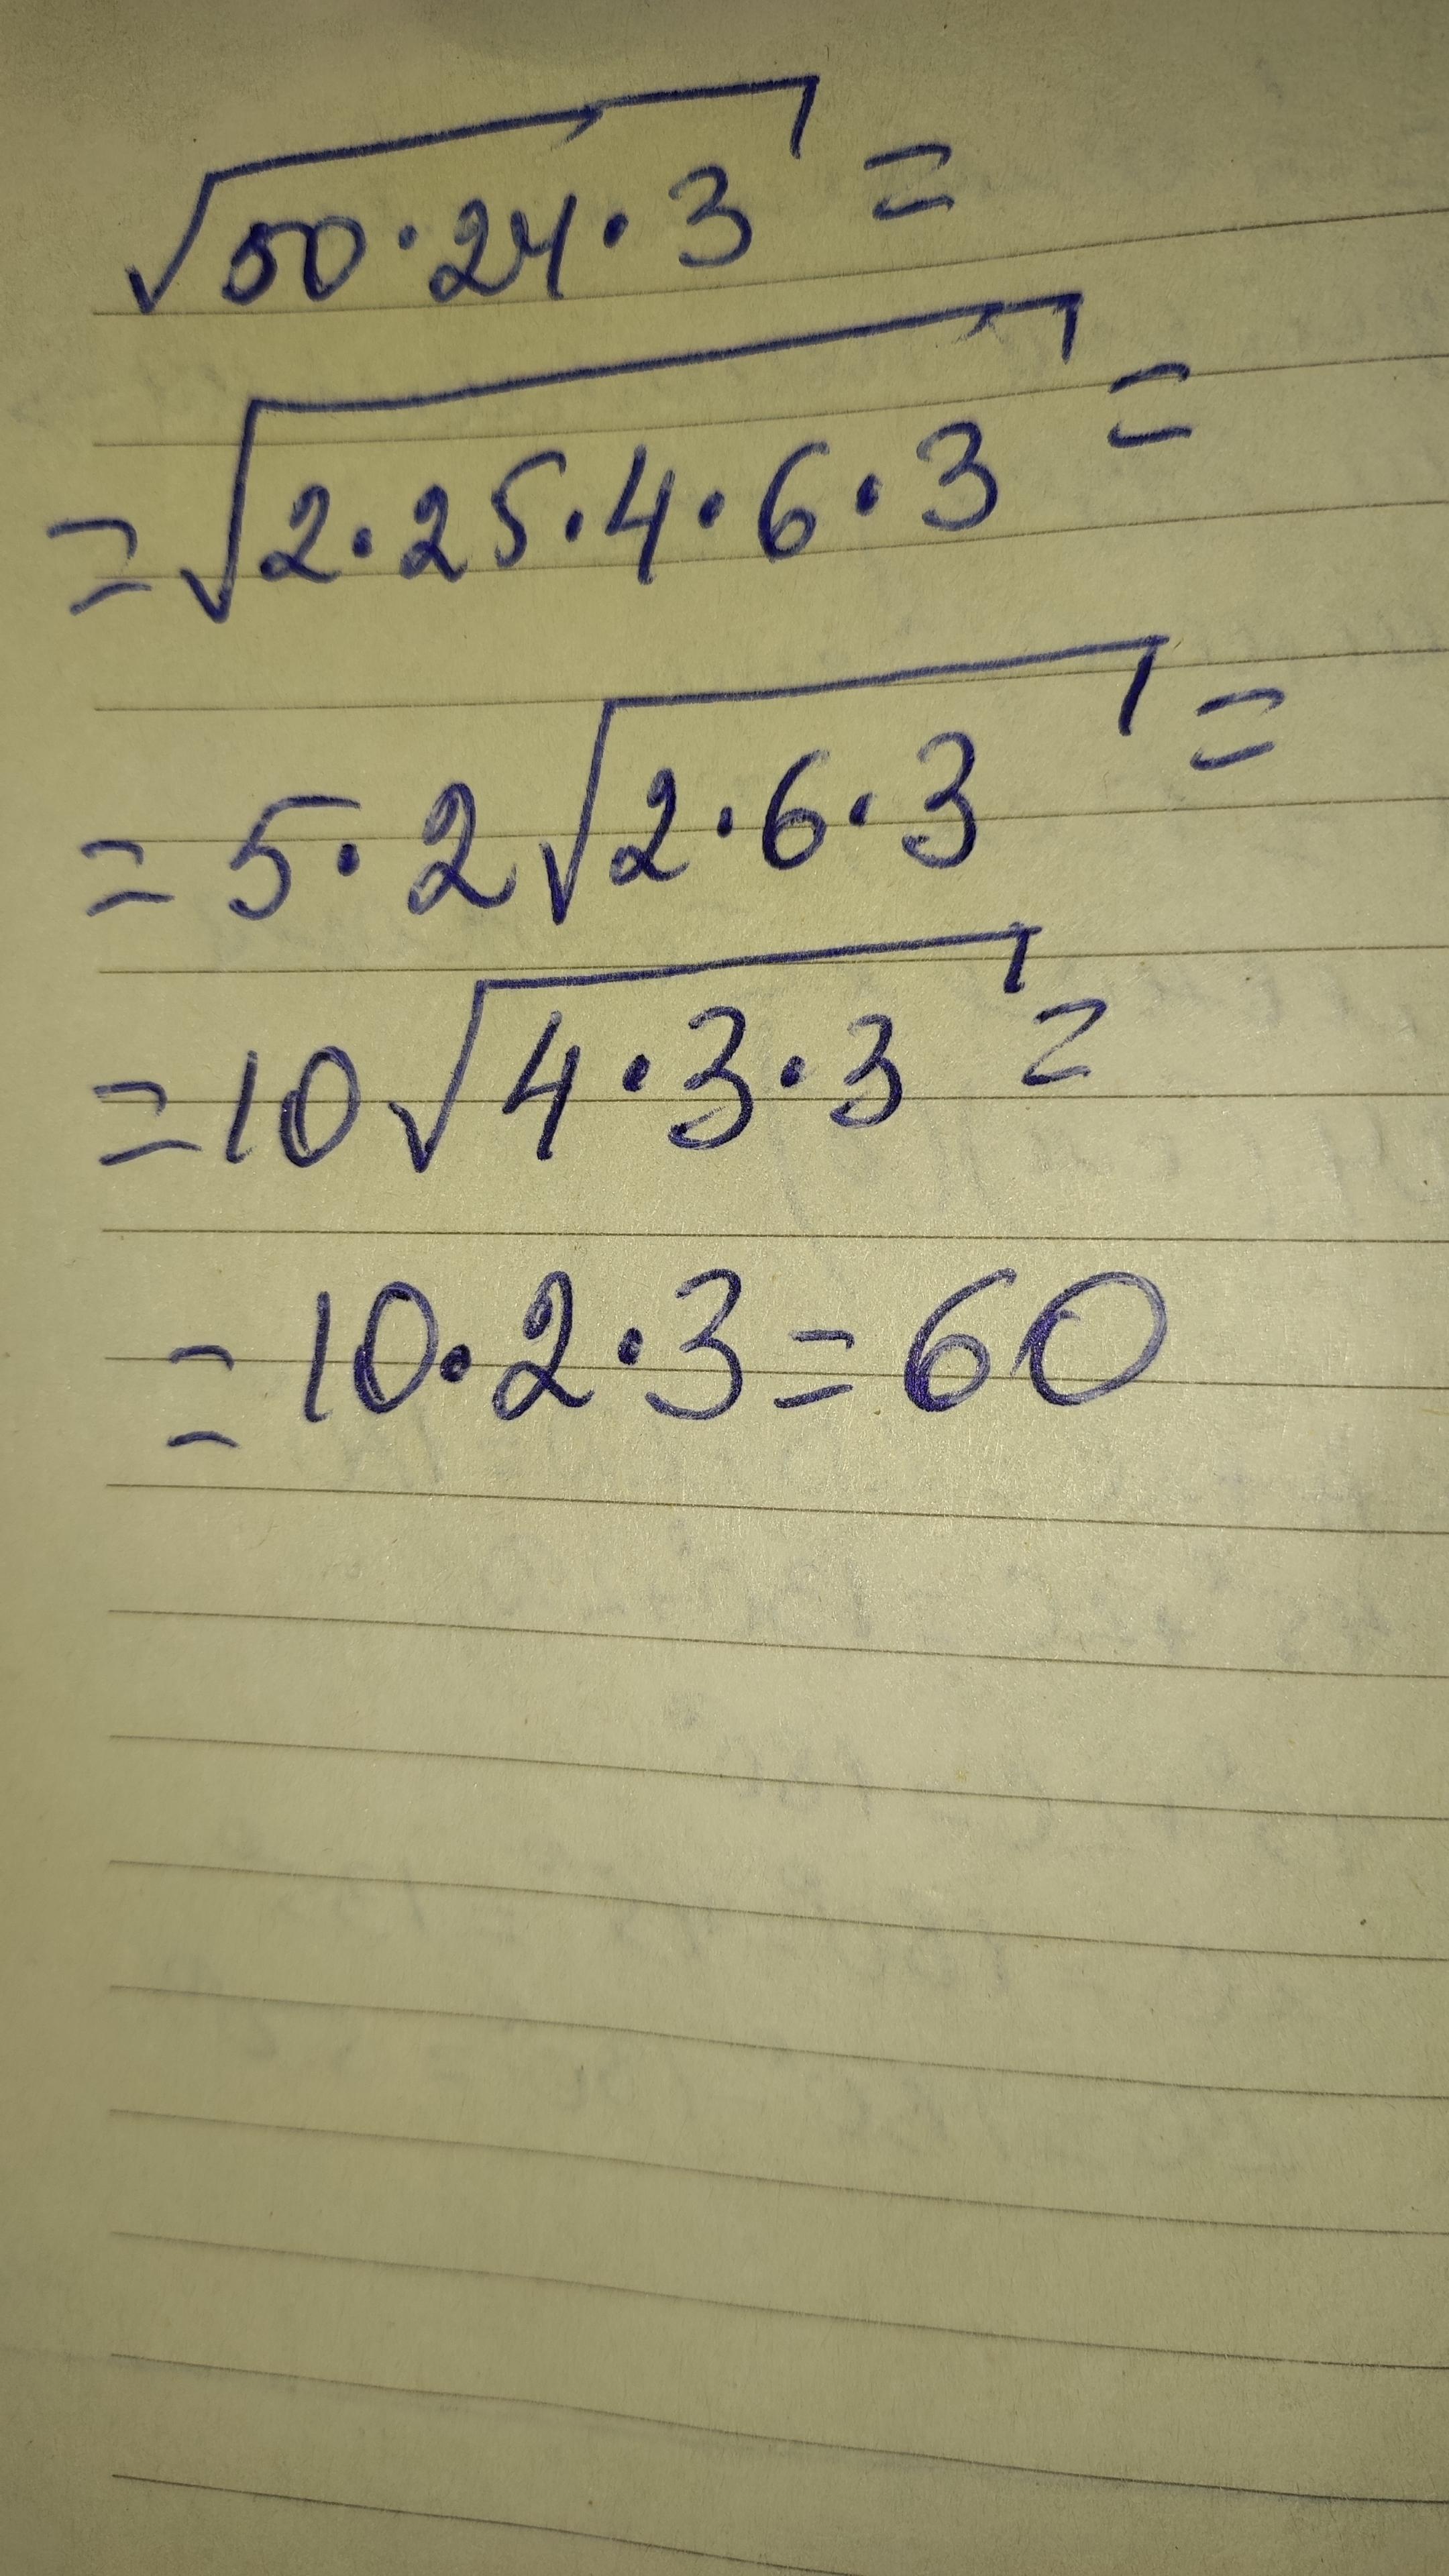 √50·24·3 =
= √2·25·4·6·3 =
= 5·2√2·6·3 =
= 10√4·3·3 =
= 10·2·3 = 60